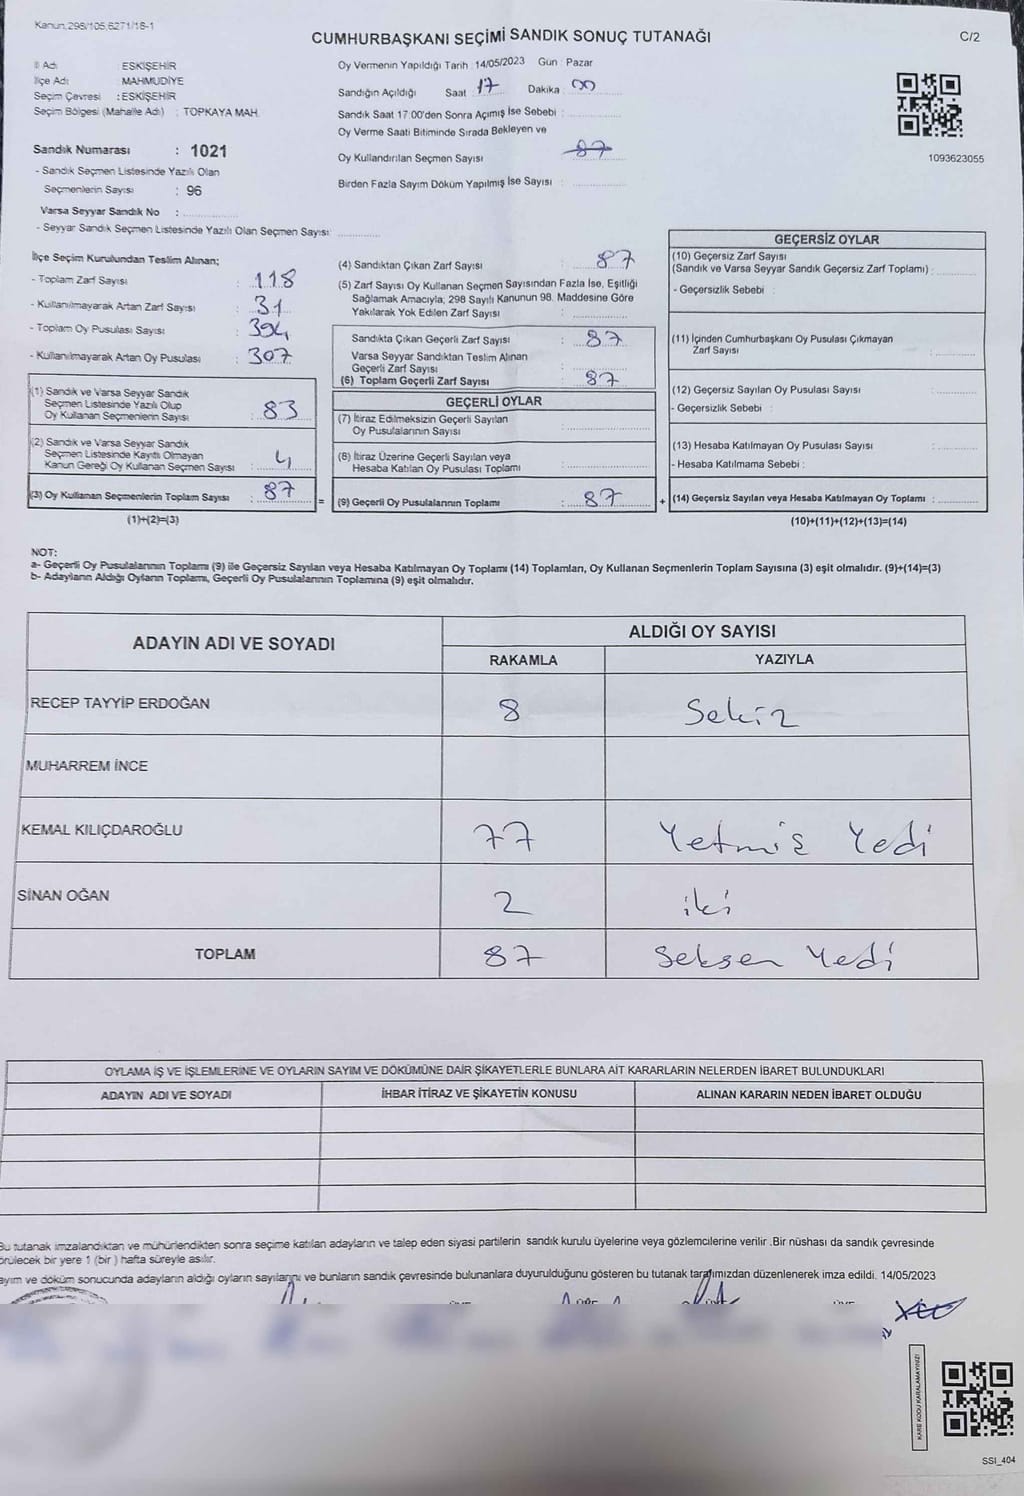 Kanun,298/105,6271/18-1
CUMHURBAŞKANI SEÇİMİ SANDIK SONUÇ TUTANAĞI
C/2
İl Adı : ESKİŞEHİR
İlçe Adı : MAHMUDİYE
Seçim Çevresi : ESKİŞEHİR
Seçim Bölgesi (Mahalle Adı) : TOPKAYA MAH.
Sandık Numarası : 1021
- Sandık Seçmen Listesinde Yazılı Olan
Seçmenlerin Sayısı : 96
Varsa Seyyar Sandık No :
- Seyyar Sandık Seçmen Listesinde Yazılı Olan Seçmen Sayısı:
Oy Vermenin Yapıldığı Tarih : 14/05/2023 Gün : Pazar
Sandığın Açıldığı Saat : 17 Dakika : 00
Sandık Saat 17:00'den Sonra Açımış İse Sebebi :
Oy Verme Saati Bitiminde Sırada Bekleyen ve
Oy Kullandırılan Seçmen Sayısı : 87
Birden Fazla Sayım Döküm Yapılmış İse Sayısı :
1093623055
İlçe Seçim Kurulundan Teslim Alınan;
- Toplam Zarf Sayısı : 118
- Kullanılmayarak Artan Zarf Sayısı : 31
- Toplam Oy Pusulası Sayısı : 394
- Kullanılmayarak Artan Oy Pusulası : 307
(1) Sandık ve Varsa Seyyar Sandık
Seçmen Listesinde Yazılı Olup
Oy Kullanan Seçmenlerin Sayısı : 83
(2) Sandık ve Varsa Seyyar Sandık
Seçmen Listesinde Kayıtlı Olmayan
Kanun Gereği Oy Kullanan Seçmen Sayısı : 4
(3) Oy Kullanan Seçmenlerin Toplam Sayısı : 87
(1)+(2)=(3)
(4) Sandıktan Çıkan Zarf Sayısı : 87
(5) Zarf Sayısı Oy Kullanan Seçmen Sayısından Fazla İse, Eşitliği
Sağlamak Amacıyla; 298 Sayılı Kanunun 98. Maddesine Göre
Yakılarak Yok Edilen Zarf Sayısı :
Sandıkta Çıkan Geçerli Zarf Sayısı : 87
Varsa Seyyar Sandıktan Teslim Alınan
Geçerli Zarf Sayısı :
(6) Toplam Geçerli Zarf Sayısı : 87
GEÇERLİ OYLAR
(7) İtiraz Edilmeksizin Geçerli Sayılan
Oy Pusulalarının Sayısı :
(8) İtiraz Üzerine Geçerli Sayılan veya
Hesaba Katılan Oy Pusulası Toplamı :
= (9) Geçerli Oy Pusulalarının Toplamı : 87 +
GEÇERSİZ OYLAR
(10) Geçersiz Zarf Sayısı
(Sandık ve Varsa Seyyar Sandık Geçersiz Zarf Toplamı) :
- Geçersizlik Sebebi :
(11) İçinden Cumhurbaşkanı Oy Pusulası Çıkmayan
Zarf Sayısı :
(12) Geçersiz Sayılan Oy Pusulası Sayısı :
- Geçersizlik Sebebi :
(13) Hesaba Katılmayan Oy Pusulası Sayısı :
- Hesaba Katılmama Sebebi :
(14) Geçersiz Sayılan veya Hesaba Katılmayan Oy Toplamı :
(10)+(11)+(12)+(13)=(14)
NOT:
a- Geçerli Oy Pusulalarının Toplamı (9) ile Geçersiz Sayılan veya Hesaba Katılmayan Oy Toplamı (14) Toplamları, Oy Kullanan Seçmenlerin Toplam Sayısına (3) eşit olmalıdır. (9)+(14)=(3)
b- Adayların Aldığı Oyların Toplamı, Geçerli Oy Pusulalarının Toplamına (9) eşit olmalıdır.
ADAYIN ADI VE SOYADI
ALDIĞI OY SAYISI
RAKAMLA YAZIYLA
RECEP TAYYİP ERDOĞAN 8 Sekiz
MUHARREM İNCE
KEMAL KILIÇDAROĞLU 77 Yetmiş Yedi
SİNAN OĞAN 2 iki
TOPLAM 87 Seksen Yedi
OYLAMA İŞ VE İŞLEMLERİNE VE OYLARIN SAYIM VE DÖKÜMÜNE DAİR ŞİKAYETLERLE BUNLARA AİT KARARLARIN NELERDEN İBARET BULUNDUKLARI
ADAYIN ADI VE SOYADI İHBAR İTİRAZ VE ŞİKAYETİN KONUSU ALINAN KARARIN NEDEN İBARET OLDUĞU
Bu tutanak imzalandıktan ve mühürlendikten sonra seçime katılan adayların ve talep eden siyasi partilerin sandık kurulu üyelerine veya gözlemcilerine verilir .Bir nüshası da sandık çevresinde
örülecek bir yere 1 (bir ) hafta süreyle asılır.
ayım ve döküm sonucunda adayların aldığı oyların sayılarını ve bunların sandık çevresinde bulunanlara duyurulduğunu gösteren bu tutanak tarafımızdan düzenlenerek imza edildi. 14/05/2023
KARE KODU KARALAMAYINIZ!
SSI_404